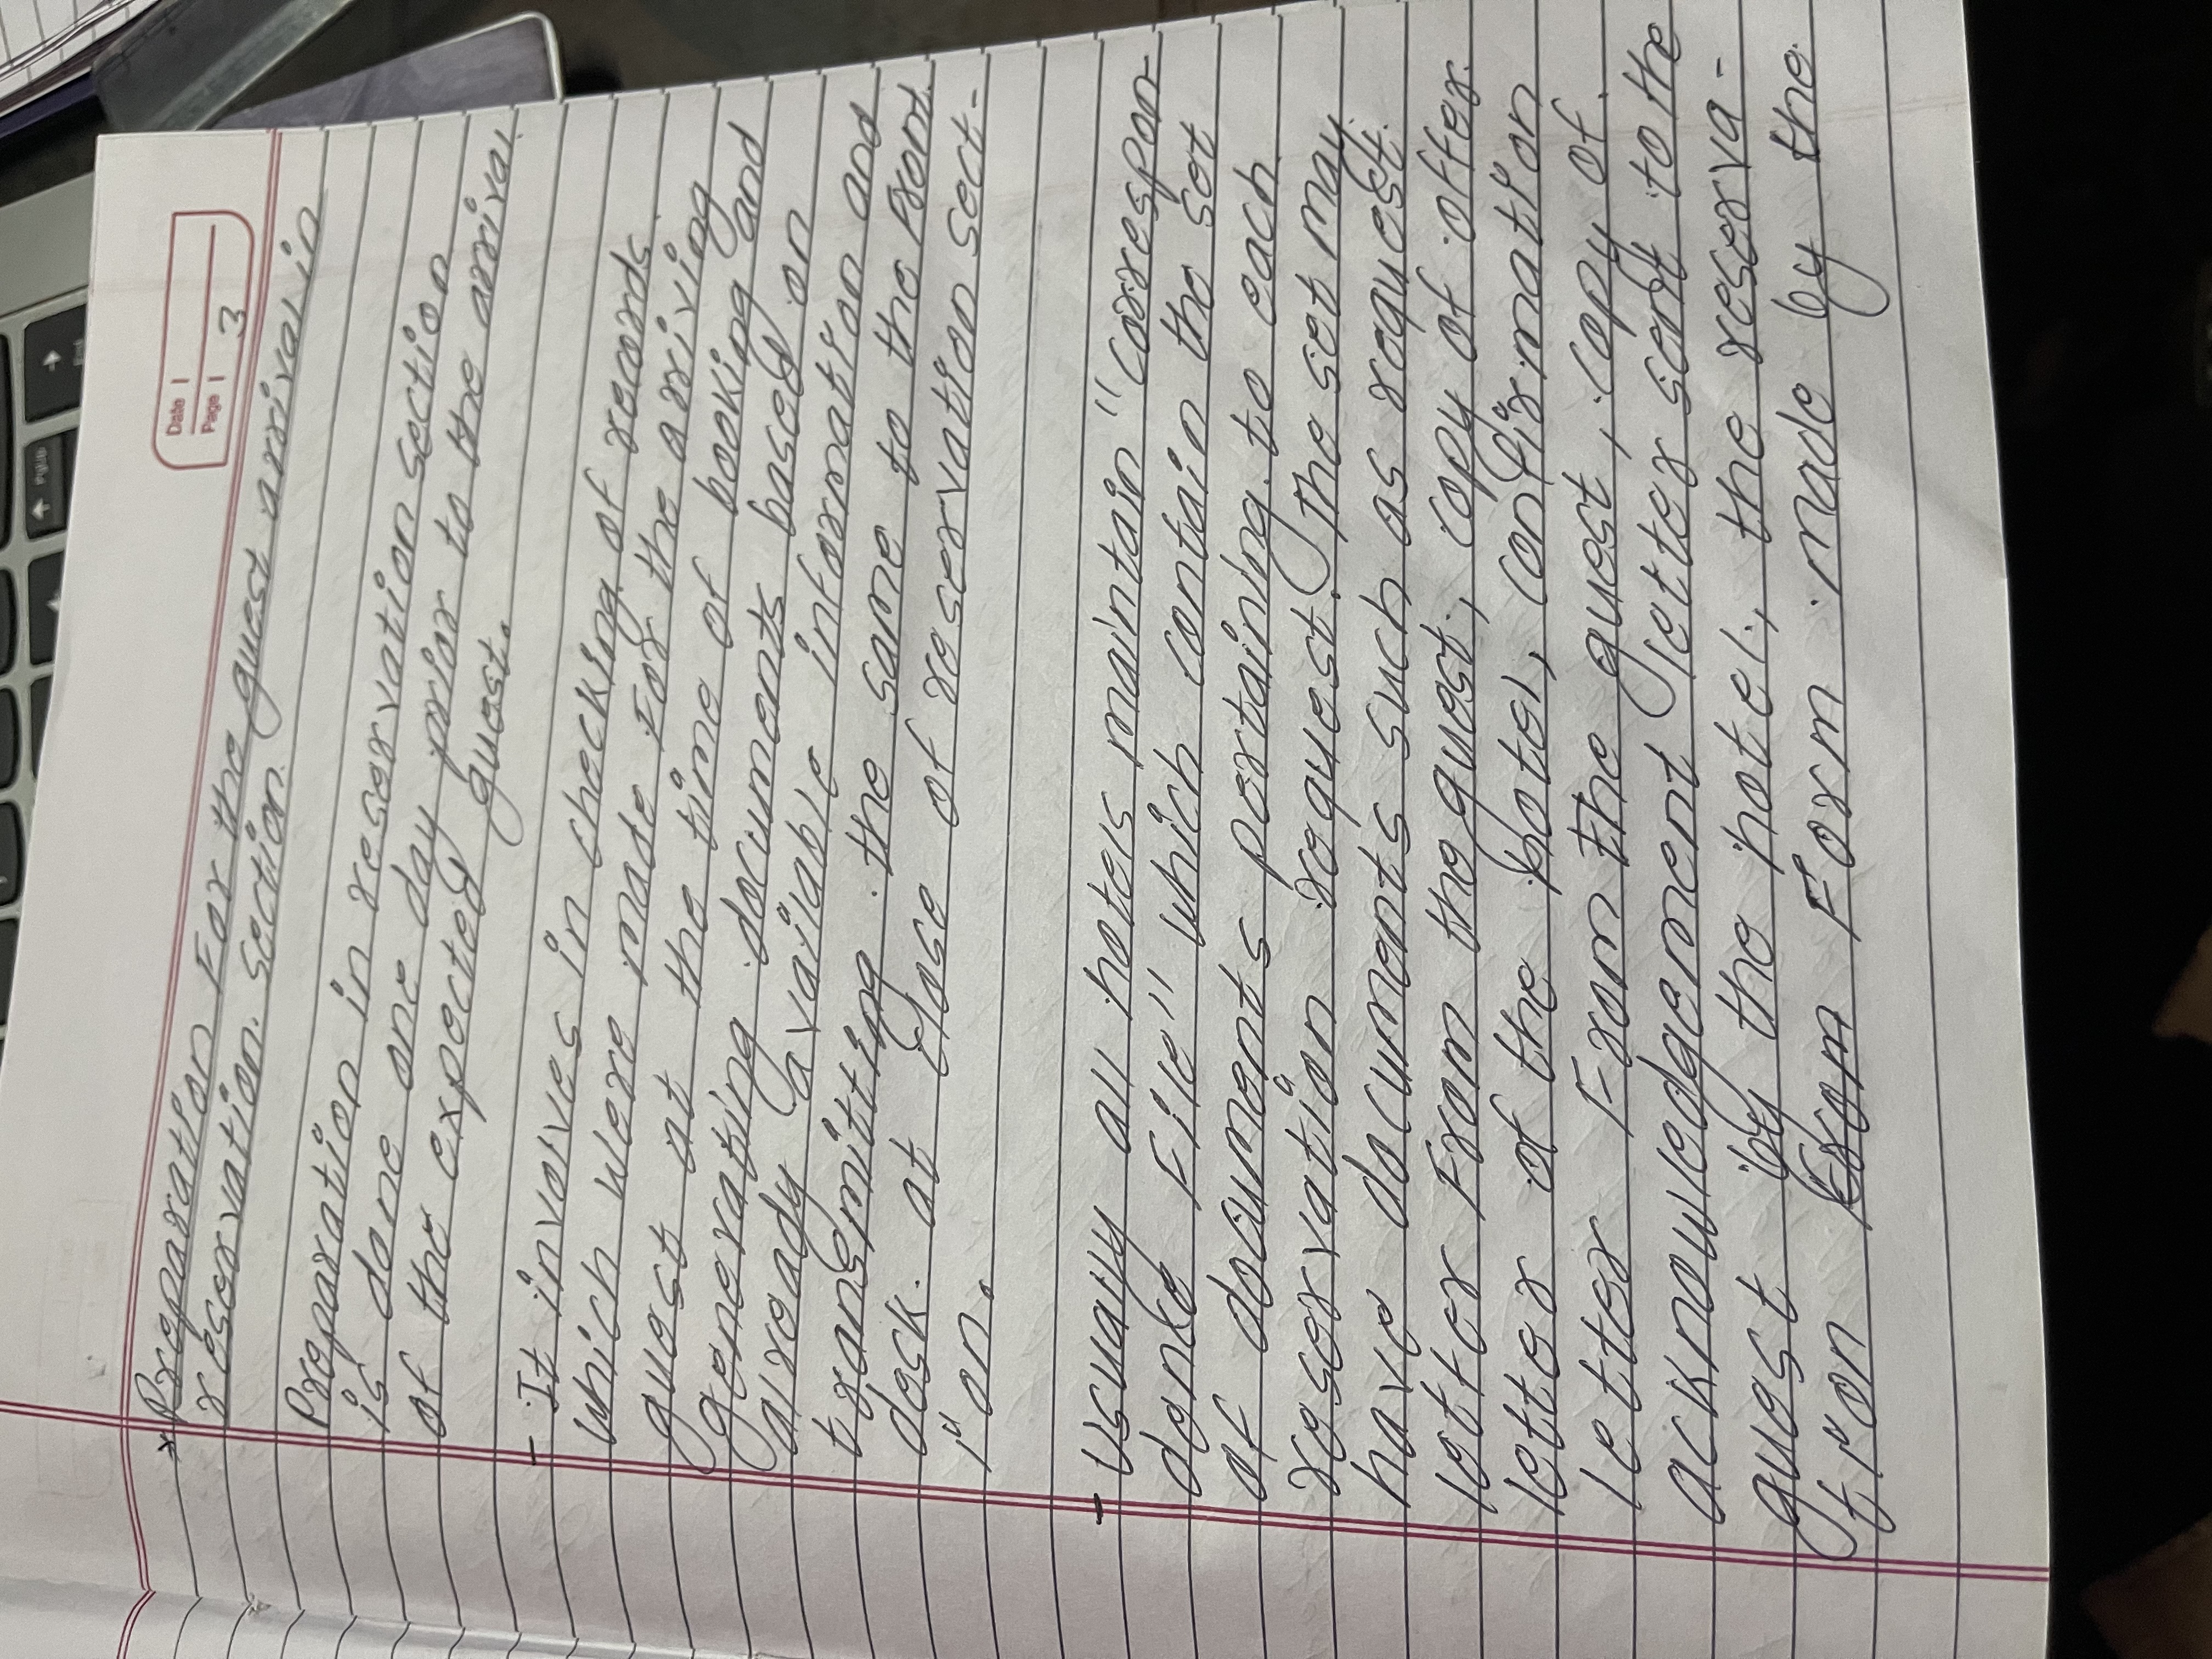 Date |
Page | 3
* Preparation For the guest arrival in
reservation. section.
Preparation in reservation section
is done one day prior to the arrival.
of the expected guest.
- It involves in checking of records
which were made For the arriving
guest at the time of booking and
generating documents based on
already available information and
transmitting the same to the Front
desk. at Close of reservation sect-
ion.
- usually all hotels maintain "correspon-
dence File" which contain the set
of documents pertaining. to each
reservation request. The set may.
have documents such as request.
letter From the guest, copy of offer.
letter of the hotel, confirmation
letter From the guest, copy of.
acknowledgement letter sent to the
guest by the hotel, the reserva-
tion Form made by the